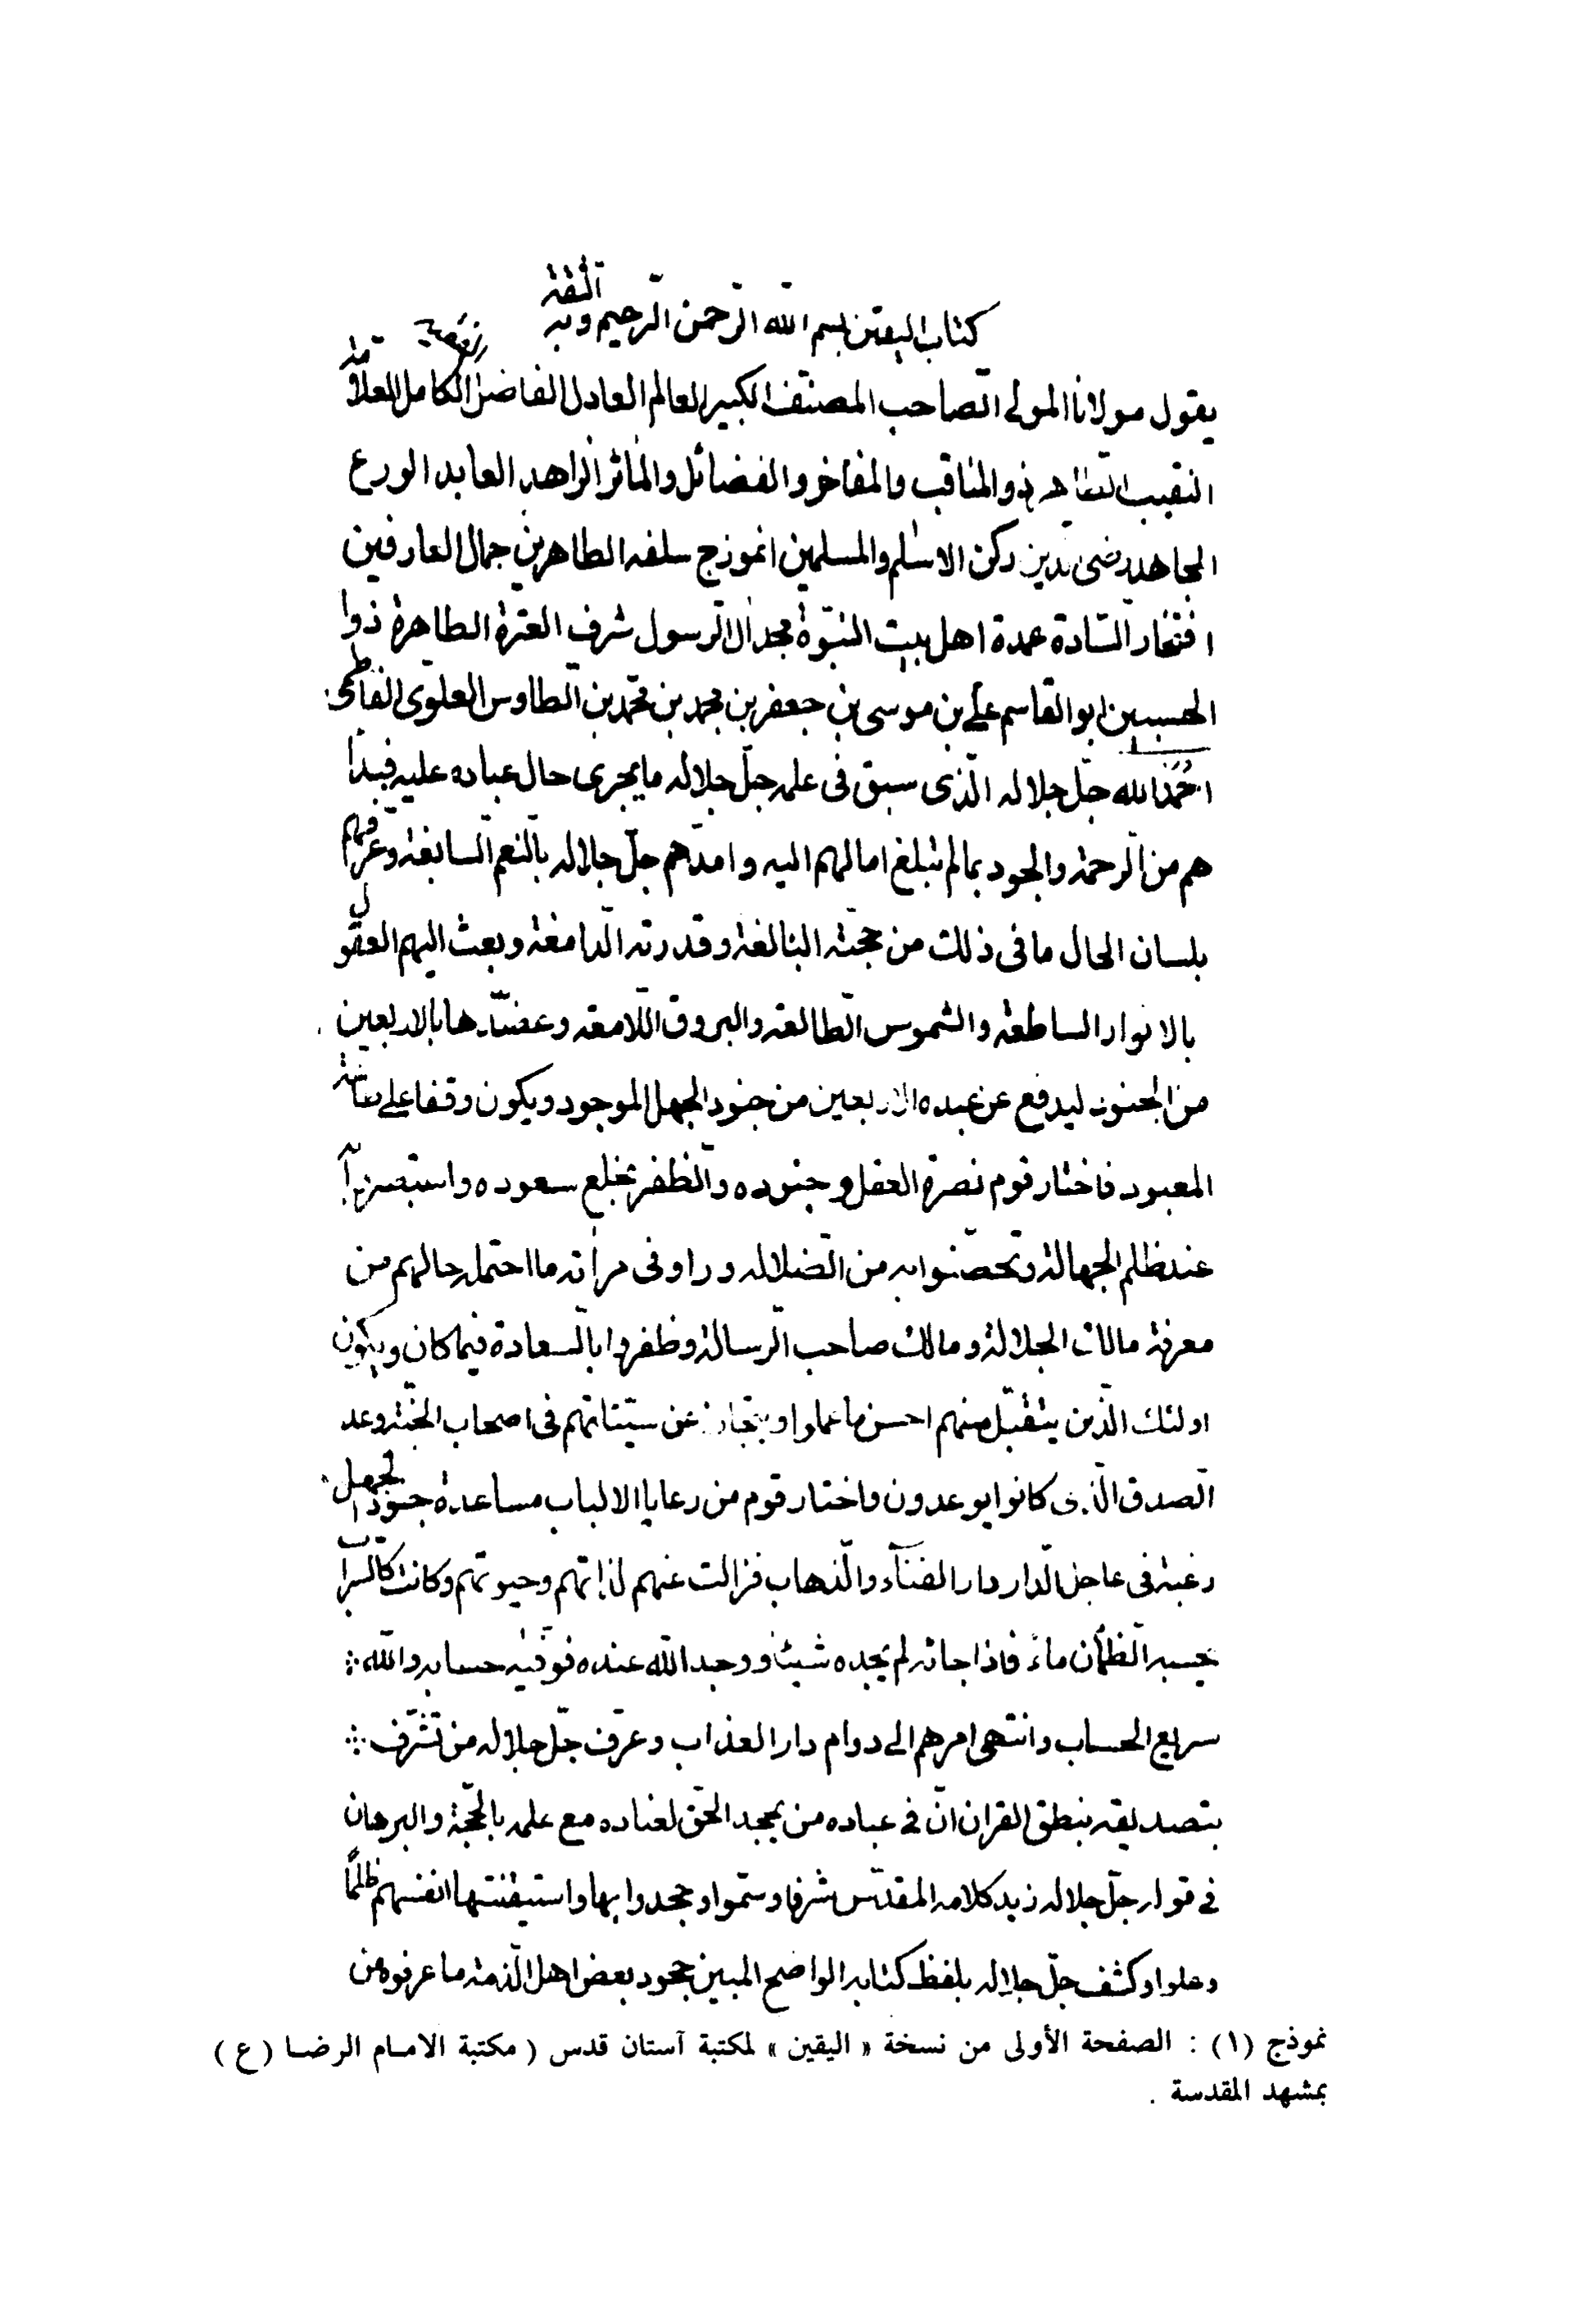 كتاب اليقين بسم الله الرحمن الرحيم وبه الثقة
يقول مولانا المولى الصاحب المصنف الكبير العالم العادل الفاضل الكامل العلامة
النقيب الطاهر ذو المناقب والمفاخر والفضائل والمآثر الزاهد العابد الورع
المجاهد رضى الدين ركن الاسلم والمسلمين انموذج سلفه الطاهرين جمال العارفين
افتخار السّادة عمدة اهل بيت النبوّة مجد آل الرسول شرف العترة الطاهرة ذوا
الحسبين ابو القاسم علي بن موسى بن جعفر بن محمد بن محمد بن الطاوس العلوى الفاطمى
احمد الله جلّ جلاله الّذى سبق فى علمه جلّ جلاله ما يجرى حال عباده عليه فبدا
هم من الرحمة والجود بمالم تبلغ امالهم اليه وامدّهم جلّ جلاله بالنعم السابغة وعرّفهم
بلسان الحال ما فى ذلك من حجته البالغة وقدرته الدامغة وبعث اليهم العقول
بالانوار الساطعة والشموس الطالعة والبروق اللامعة وعضّدها بالاربعين
من الجنود ليدفع عن عبده الاربعين من جنود الجهل الموجود ويكون وقفا على
المعبود فاختار قوم نصرة العقل وجنوده والظفر بخلع سعوده واستبصروا
عند ظلم الجهالة وتحصّنوا به من الضلاله وراوا فى مرأته ما احتمل حالهم من
معرفة مالك الجلالة ومالك صاحب الرسالة وظفروا بالسعادة فيما كان ويكون
اولئك الّذين يتقبّل منهم احسن ما عملوا ويتجاوز عن سيّئاتهم فى اصحاب الجنّة وعد
الصدق الّذى كانوا يوعدون واختار قوم من رعايا الالباب مساعدة جنود الجهل
رغبة فى عاجل الدار دار الفنآء والذهاب فزالت عنهم لذاتهم وحيوتهم وكانت كالسراب
يحسبه الظمأن ماءً فاذا جائه لم يجده شيئا ووجد الله عنده فوفّيه حسابه والله
سريع الحساب وانتهى امرهم الى دوام دار العذاب وعرّف جلّ جلاله من تشرّف
بتصديقه بنطق القران انّ فى عباده من يجحد الحق لعناده مع علمه بالحجّة والبرهان
فى قوله جلّ جلاله زيد كلامه المقدّس شرفا وسموا وجحدوا بها واستيقنتها انفسهم ظلمًا
وعلوا وكشف جلّ جلاله بلفظ كتابه الواضح المبين جحود بعض اهل الذمة ما عرفوه من
نموذج (١) : الصفحة الأولى من نسخة « اليقين » لمكتبة آستان قدس ( مكتبة الامام الرضا (ع )
بمشهد المقدسة .